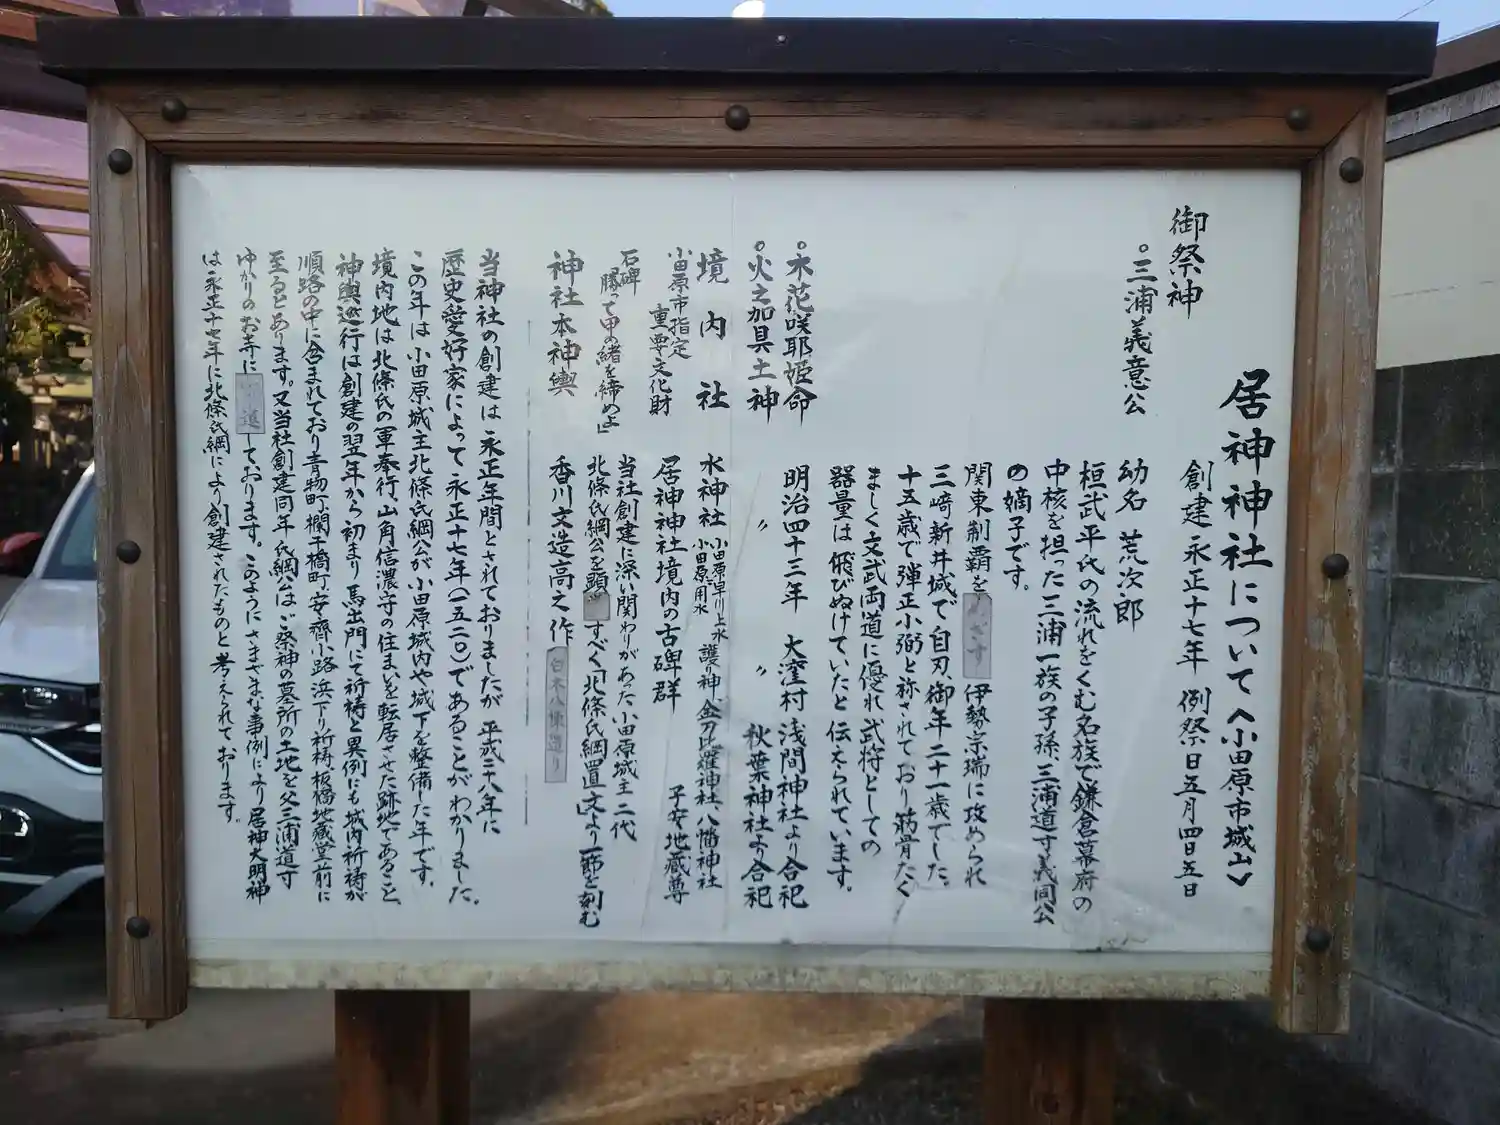 居神神社について〈小田原市城山〉
創建 永正十七年 例祭日五月四日五日
御祭神
。三浦義意公
幼名 荒次郎
桓武平氏の流れをくむ名族で鎌倉幕府の
中核を担った三浦一族の子孫、三浦道寸義同公
の嫡子です。
関東制覇をめざす伊勢宗瑞に攻められ
三﨑新井城で自刃、御年二十一歳でした。
十五歳で弾正小弼と称されており筋骨たく
ましく文武両道に優れ武将としての
器量は飛びぬけていたと伝えられています。
。木花咲耶姫命 明治四十三年 大窪村 浅間神社より合祀
。火之加具土神 〃 〃 秋葉神社より合祀
境内社 水神社 小田原早川上水 小田原ご用水 護り神、金刀比羅神社、八幡神社
小田原市指定 重要文化財 居神神社境内の古碑群 子安地蔵尊
石碑 勝って甲の緒を締めよ」 当社創建に深い関わりがあった小田原城主二代
北條氏綱公を顕 すべく「北條氏綱置文」より一節を刻む
神社本神輿 香川文造高之作 白木八棟造り
当神社の創建は永正年間とされておりましたが平成二八年に
歴史愛好家によって永正十七年(一五二〇)であることがわかりました。
この年は小田原城主北條氏綱公が小田原城内や城下を整備した年です。
境内地は北條氏の軍奉行、山角信濃守の住まいを転居させた跡地であること、
神輿巡行は創建の翌年から初まり馬出門にて祈祷と異例にも城内祈祷が
順路の中に含まれており青物町、欄干橋町、安齋小路、浜下り祈祷、板橋地蔵堂前に
至るとあります。又当社創建同年氏綱公は、ご祭神の墓所の土地を父三浦道寸
ゆかりのお寺に 進しております。このようにさまざまな事例により居神大明神
は永正十七年に北條氏綱により創建されたものと考えられております。